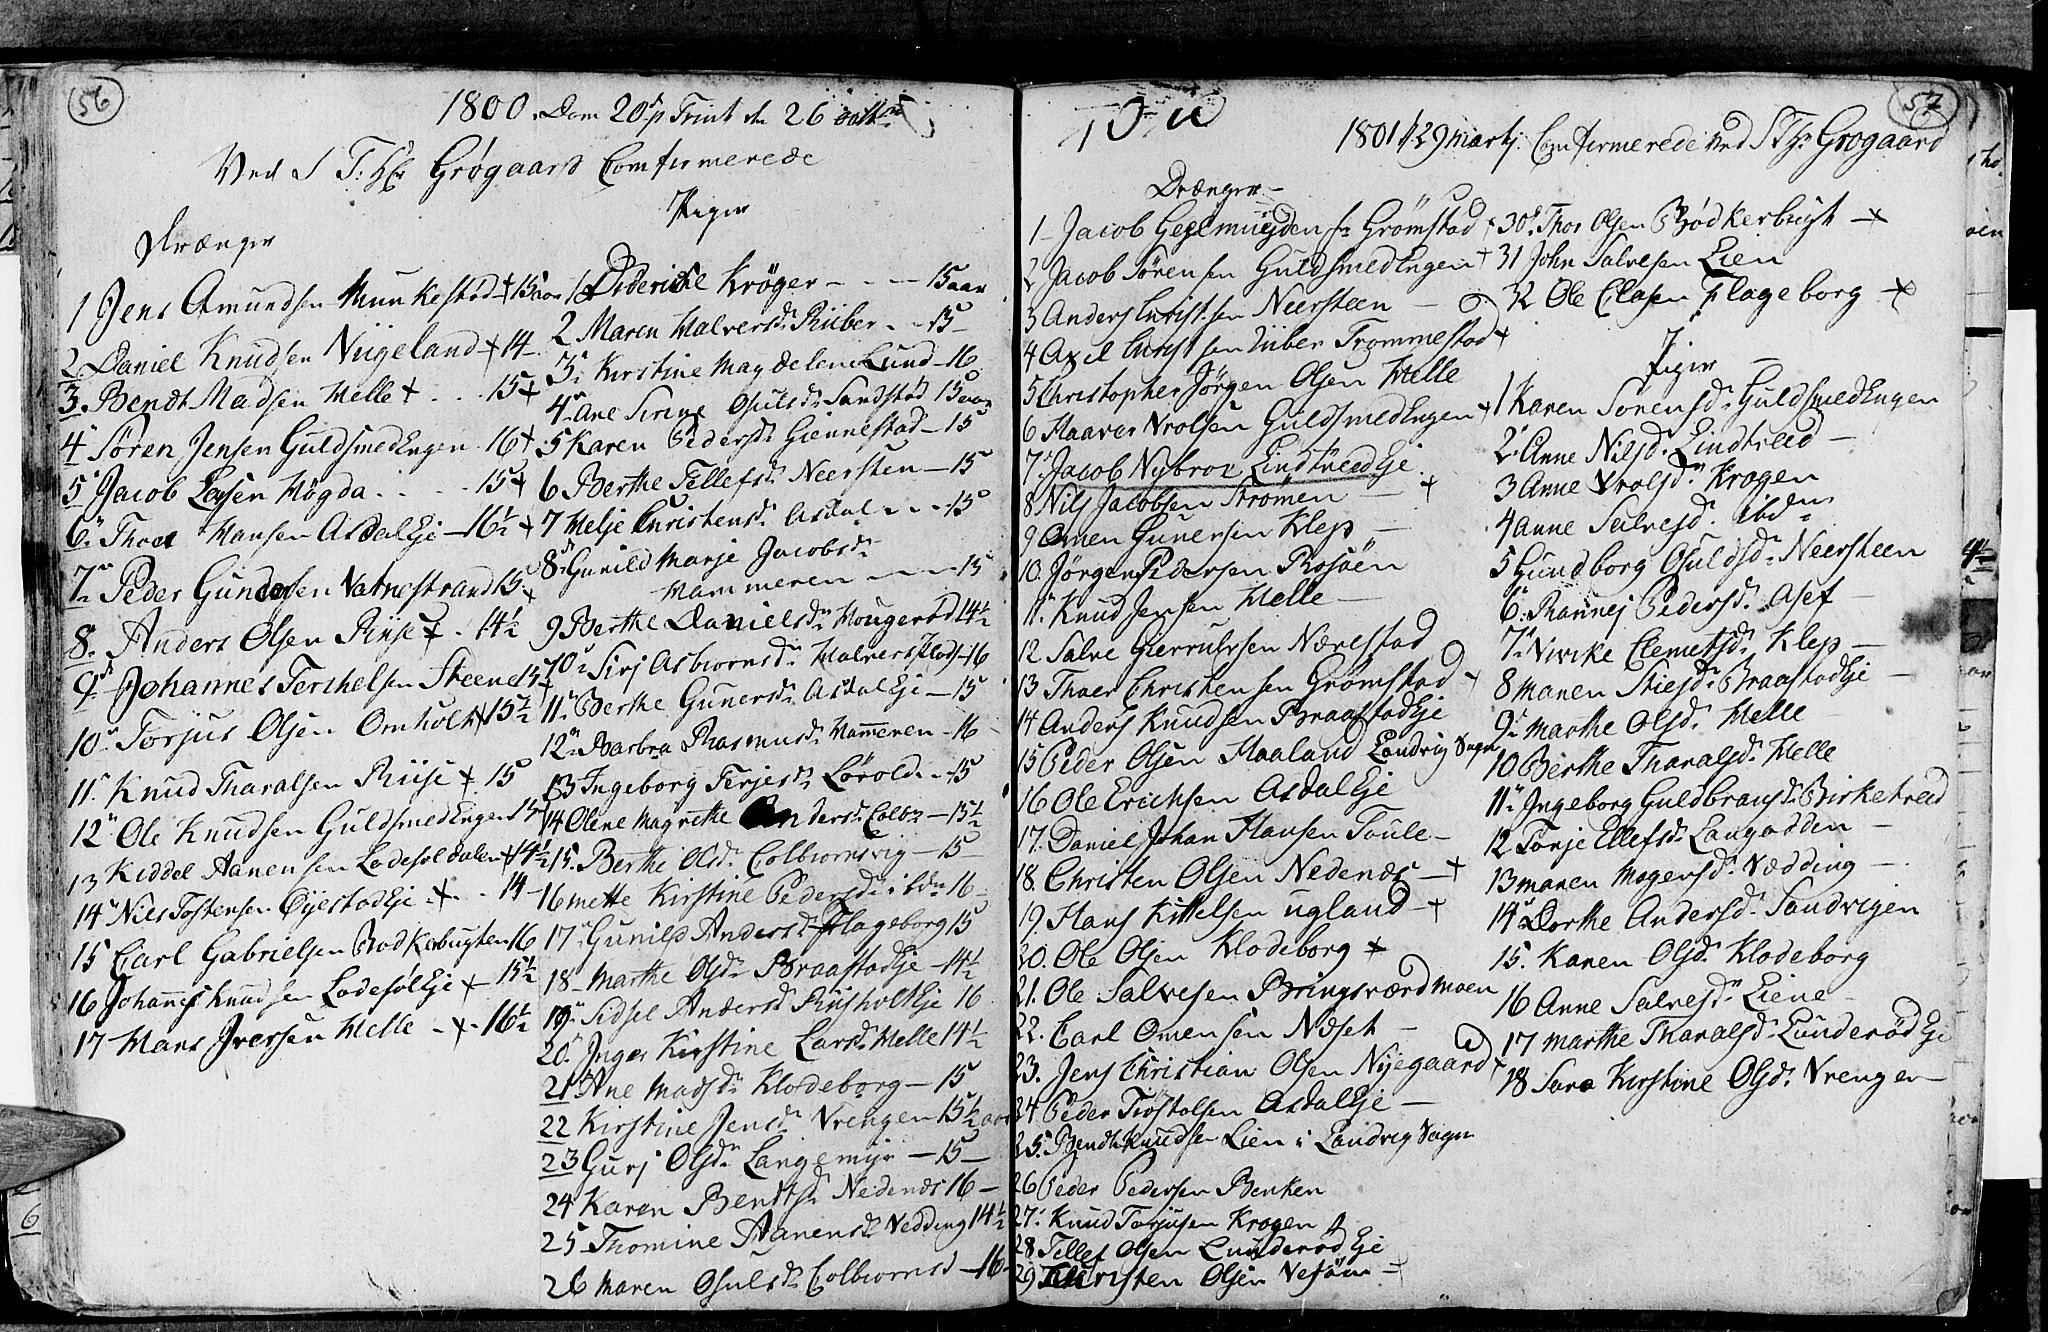 56
1800. Dom 20 p Trint d 26 octbr
Ved S T: Hr Grøgaard Comfirmerede
Drænger
1 Jens Amundsen Munkestød + 15 aar
2 Daniel Knudsen Nügeland + 14
3. Bendt Madsen Helle + . . 15 +
4 Søren Jensen GuldsmedEngen 16 +
5 Jacob Leysen Høgda . . . . 15 +
6 Thoer Hansen AsdalEje 16½ +
7 Peder Gundersen Natnestrand 15 +
8. Anders Olsen Riise + . 14½
9 Johannes Terchelsen Steene 15 +
10 Torjus Olsen Omholt + 15½
11 Knud Tharalsen Riise + 15
12 Ole Knudsen GuldsmedEngen 15
13 Kiddel Aanensen Ladesøldalen + 14½
14 Niels Tostensen ØyestadEje + . 14
15 Carl Gabrielsen Bødkerbugten 16
16 Johannes Knudsen LadesølEje + 15½
17 Hans Iversen Helle + 16½
Piger
1 Diderikke Krøger - - - 15 aar
2 Maren Halversd. Riiber - - 15
3 Kirstine Magdelene Lund - 16
4 Ane Sirine Osulsd. Sandstød 15 aar
5 Karen Pedersd. Giennestad - 15
6 Berthe Tellefsd. Neersten - 15
7 Helje Christensd. Asdal - - 15
8 Gunild Marje Jacobsd.
Hammeren - - - 15
9 Berthe Danielsd. Hougerød 14½
10 Sirj Asbiornsd. Halversplads 16
11 Berthe Gunersd. AsdalEje - 15
12 Barbra Rasmusd. Hameren - 16
13 Ingeborg Terjesd. Lørold. - 15
14 Oline Magrethe Andersd. Colb. - 15½
15. Berthe Olsd. Colbiornsvig - 15
16 Mette Kirstine Pedersd. ibdm 16
17 Gunild Andersd. Flageborg 15
18 Marthe Olsd. BraastadEje - 14½
19 Sidsel Andersd. RiisholtEje 16
20 Inger Kirstine Larsd. Helle 14½
21 Ane Madsd. Klodeborg - 15
22 Kirstine Jensd. Vrengen 15½ aar
23 Gurj Olsd. Langemyr - 15
24 Karen Bentsd. Nedenæs 16
25 Thomine Aanensd. Vedding 14½
26 Maren Osulsd. Colbiornsd - 16
57
1801 d 29 Martj. Comfirmerede ved S T Hr Grogaard
Drænger
1 Jacob Gegemüyden fr Grømstad
2 Jacob Sørensen GuldsmedEngen +
3 Anders Christsen Neersteen -
4 Axel Christsen Trommestad +
5 Christopher Jørgen Olsen Helle
6 Haaver Vrolsen GuldsmedEngen +
7 Jacob Nybroe LindtveedEje
8 Nils Jacobsen Strømen - +
9 Omen Gunersen Klep -
10. Jørgen Pedersen Rosøen
11. Knud Jensen Helle -
12 Salve Gierrulvsen Nærestad
13 Thoer Christensen Grømstad +
14 Anders Knudsen BraastadEje
15 Peder Olsen Haaland Landvig Sogn
16 Ole Erichsen AsdalEje
17. Daniel Johan Hansen Soule -
18. Christen Olsen Nedenæs - +
19. Hans Kittelsen Ugland - +
20. Ole Olsen Klodeborg +
21. Ole Salvesen Bringsværdmoen
22. Carl Omensen Næset -
23. Jens Christian Olsen Nyegaard +
24 Peder Tiøstolsen AsdalEje -
25. Bendt Knudsen Lien i Landvig Sogn
26 Peder Pedersen Benken
27. Knud Torjusen Krogen
28 Tellef Olsen LunderødEje
29 Christen Olsen Nesøm - +
30 Thor Olsen Bødkerbugt - +
31 John Salvesen Lien
32 Ole Olasen Flageborg +
Piger
1 Karen Sørensd. GuldsmedEngen
2 Anne Nilsd. Lindtveed -
3 Anne Vrolsd. Krogen
4 Anne Salvesd. ibdm
5 Gundborg Osuldsd. Neersteen
6. Rannej Pedersd. Asef -
7 Nivike Clemetsd. Klep -
8 Maren Stiesd. BraastadEje -
9 Marthe Olsd. Helle -
10 Berthe Tharalsd. Helle
11 Ingeborg Guldbransd. Birketved
12 Torje Ellefsd. Langodden -
13 Maren Mogensd. Vædding -
14 Dorthe Andersd. Sandvigen
15. Karen Olsd. Klodeborg
16 Anne Salvesd. Liene -
17 Marthe Tharalsd. LunderødEje
18 Sara Kirstine Olsd. Vrengen -